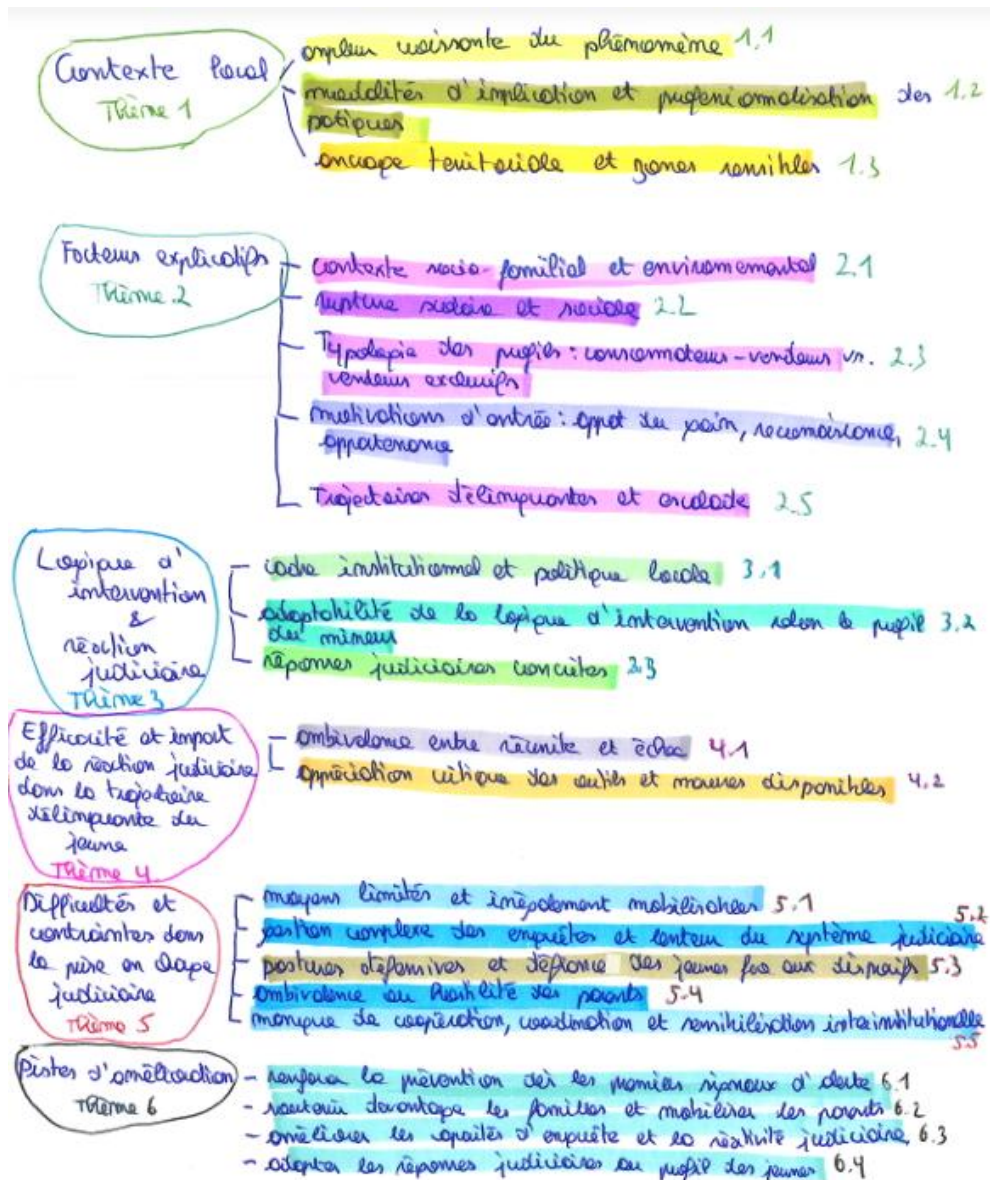 Contexte local
Thème 1
ampleur croissante du phénomène 1.1
modalités d'implication et professionnalisation des 1.2
pratiques
ancrage territoriale et zones sensibles 1.3
Facteurs explicatifs
Thème 2
contexte socio-familial et environnemental 2.1
rupture scolaire et sociale 2.2
Typologie des profils : consommateurs-vendeurs vs. 2.3
vendeurs exclusifs
motivations d'entrée : appat du gain, reconnaissance, 2.4
appartenance
Trajectoires délinquantes et escalade 2.5
Logique d'
intervention
&
réaction
judiciaire
Thème 3
cadre institutionnel et politique locale 3.1
adaptabilité de la logique d'intervention selon le profil 3.2
du mineur
réponses judiciaires concrètes 3.3
Efficacité et impact
de la réaction judiciaire
dans la trajectoire
délinquante du
jeune
Thème 4
ambivalence entre réussite et échec 4.1
appréciation critique des outils et mesures disponibles 4.2
Difficultés et
contraintes dans
la prise en charge
judiciaire
Thème 5
moyens limités et inégalement mobilisables 5.1
gestion complexe des enquêtes et lenteur du système judiciaire 5.2
postures défensives et défiance des jeunes face aux dispositifs 5.3
ambivalence ou hostilité des parents 5.4
manque de coopération, coordination et sensibilisation interinstitutionnelle 5.5
Pistes d'amélioration
Thème 6
- renforcer la prévention dès les premiers signaux d'alerte 6.1
- soutenir davantage les familles et mobiliser les parents 6.2
- améliorer les capacités d'enquête et la réactivité judiciaire, 6.3
- adapter les réponses judiciaires au profil des jeunes 6.4